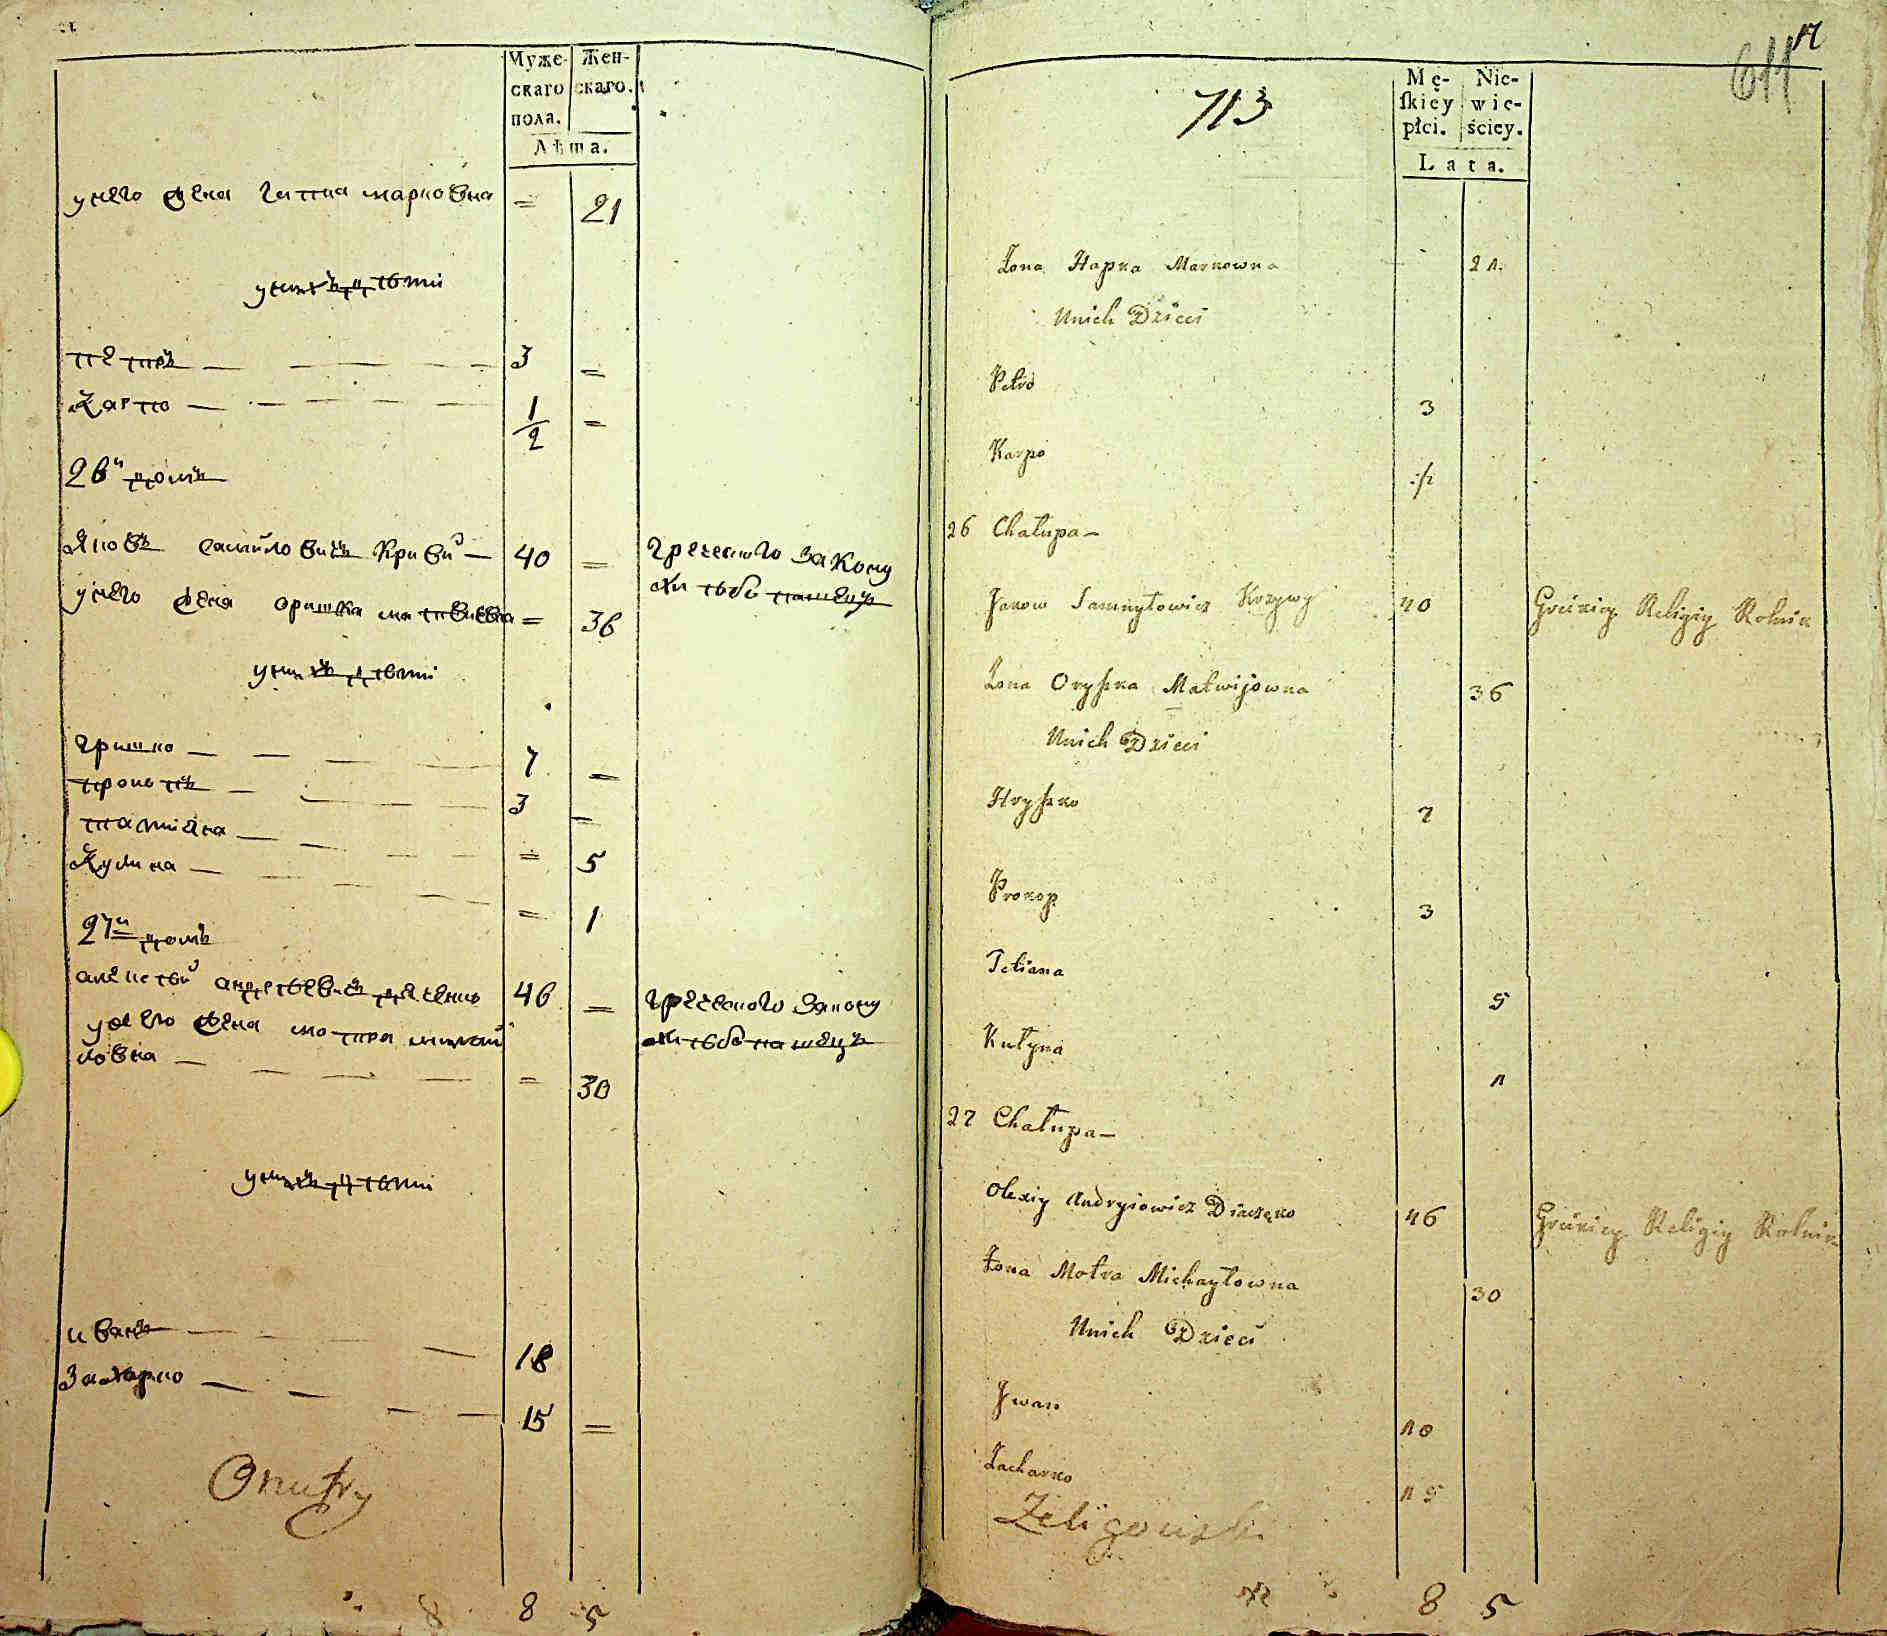 Муже-
скаго
пола.
Жен-
скаго.
Лѣта.
у него жена гапка марковна = 21
у нихъ дѣти
петръ — 3 =
Карпо — 1/2 =
26й домъ
Яковъ самуйловичъ Криви — 40 = греческого закону
хлѣбопашецъ
у него жена оришка матвиевна = 36
у нихъ дѣти
гришко — 7 =
прокопъ — 3 =
татияна — = 5
Кулина — = 1
27й домъ
алексѣй андрѣевичъ дяченко 46 = греческого закону
хлѣбопашецъ
у него жена мотра михай
ловна — = 30
у нихъ дѣти
иванъ — 18
Захарко — 15 =
8 5
17
611
713
Mę-
ſkiey
płci.
Nie-
wie-
ściey.
Lata.
Żona Hapka Markowna 21.
Unich Dzieci
Petro 3
Karpo ½
26 Chałupa —
Jakow Samuyłowicz Krzywy 40 Gréckiey Religiy Rolnik
Żona Oryszka Matwijowna 36
Unich Dzieci
Hryszko 7
Prokop 3
Tetiana 5
Kułyna 1
27 Chałupa —
Olexiy Andryiowicz Diaczęko 46 Gréckiey Religiy Rolnik
Żona Motra Michayłowna 30
Unich Dzieci
Jwan 18
Zacharko 15
8 5